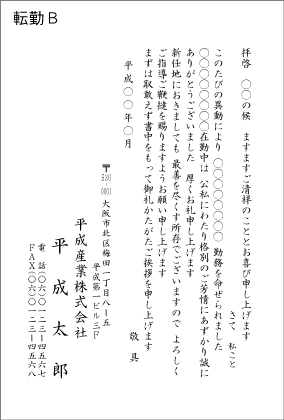 転勤B
拝啓 〇〇の候 ますますご清祥のこととお喜び申し上げます
さて 私こと
このたびの異動により 〇〇〇〇〇〇 勤務を命ぜられました
〇〇〇〇〇〇在勤中は 公私にわたり格別のご芳情にあずかり誠に
ありがとうございました 厚くお礼申し上げます
新任地におきましても 最善を尽くす所存でございますので よろしく
ご指導ご鞭撻を賜りますようお願い申し上げます
まずは取敢えず書中をもって御礼かたがたご挨拶を申し上げます
敬具
平成〇〇年〇月
〒530-0001 大阪市北区梅田一丁目八ー五
平成第一ビル三F
平成産業株式会社
平成太郎
電話(〇六)〇一二三ー四五六七
FAX(〇六)〇一二三ー四五六八